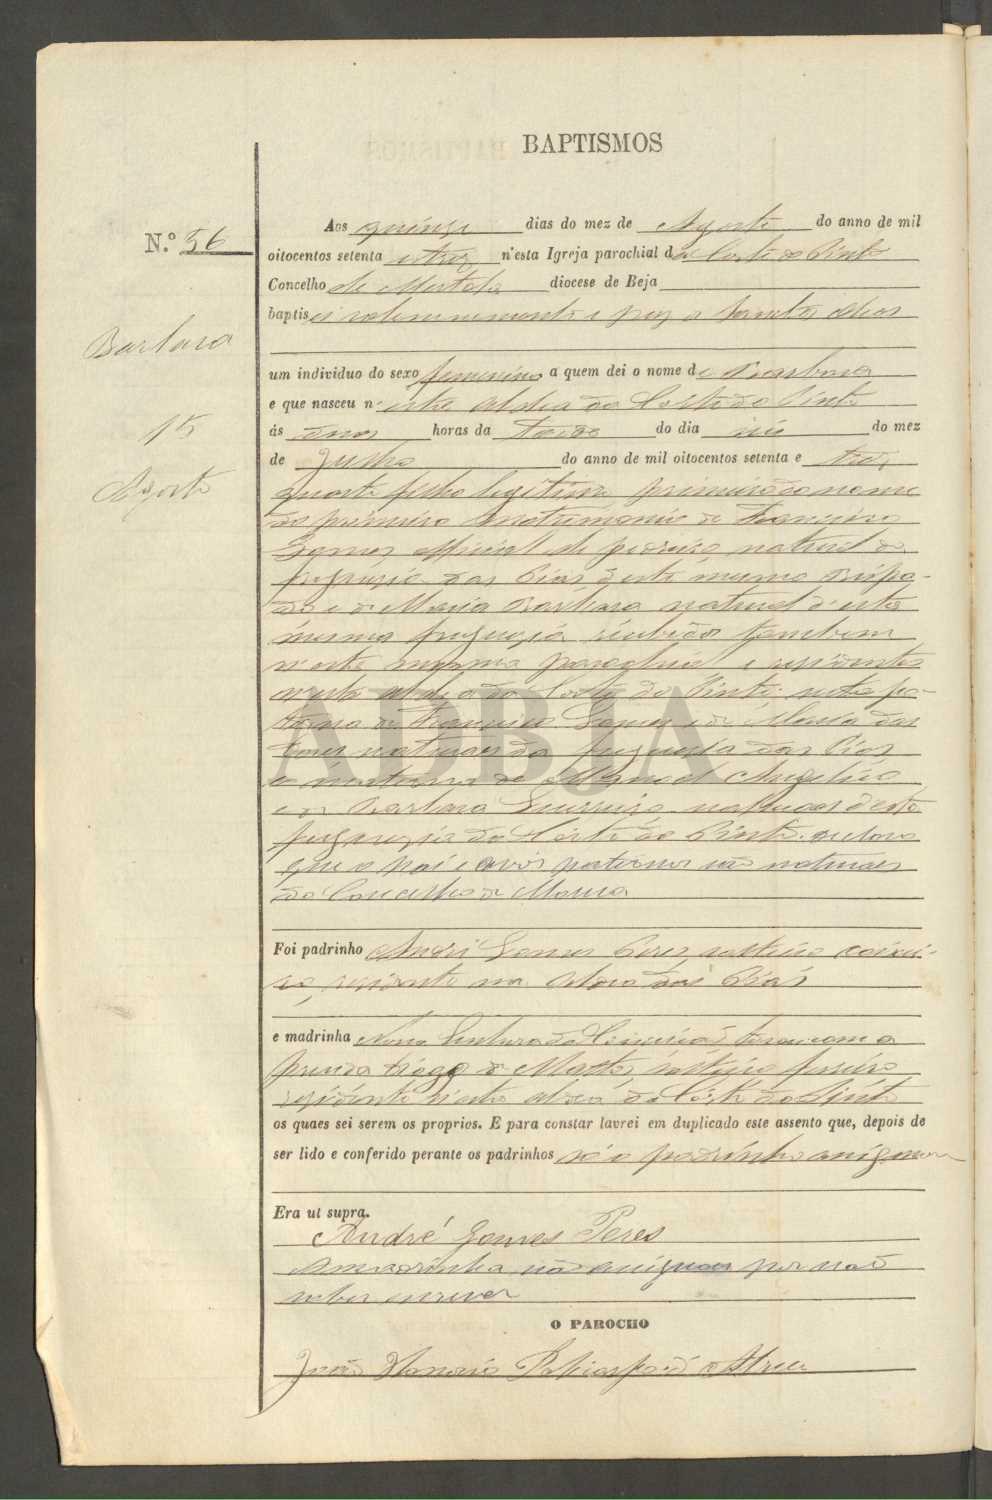 BAPTISMOS
N.º 56
Barbara
15
Agosto
Aos quinze dias do mez de Agosto do anno de mil
oitocentos setenta e trez n'esta Igreja parochial da Corte do Pinto
Concelho de Mertola diocese de Beja
baptisei solemnemente e puz os santos oleos
um individuo do sexo femenino a quem dei o nome de Barbara
e que nasceu n'esta aldea da Corte do Pinto
ás horas da tarde do dia do mez
de Julho do anno de mil oitocentos setenta e trez
filha legitima primeira do nome
do primeiro matrimonio de Francisco
Gomes official de pedreiro natural da
freguezia das Pias d'este mesmo Bispa-
do e de Maria Barbara natural d'esta
mesma freguezia recebidos tambem
n'esta mesma parochial e residentes
n'esta aldea da Corte do Pinto: neta pa-
terna de Francisco Gomes e de Maria das
naturaes da freguezia das Pias
e materna de Manoel Angelino
e de Barbara naturaes d'esta
freguezia da Corte do Pinto. declaro
que o pai e avós paternos são naturaes
do Concelho de Moura
Foi padrinho André Gomes Peres solteiro caixei-
ro, residente na Aldea das Pias
e madrinha Nossa Senhora da Conceição tocou com a
prenda Diogo de Mattos solteiro
residente n'esta aldea da Corte do Pinto
os quaes sei serem os proprios. E para constar lavrei em duplicado este assento que, depois de
ser lido e conferido perante os padrinhos só o padrinho assignou
Era ut supra.
André Gomes Peres
A madrinha não assignou por não
saber escrever
O PAROCHO
João
ADBJA